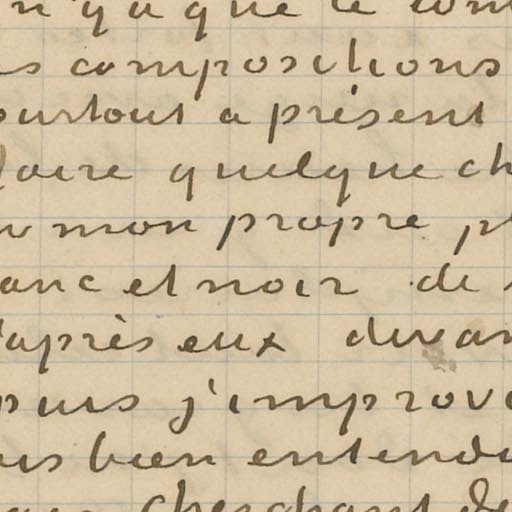 n'y a que le com
s compositions
surtout a présent
faire quelque ch
mon propre pl
anc et noir de
'après eux devan
puis j'improvi
is bien entendu
cherchant de